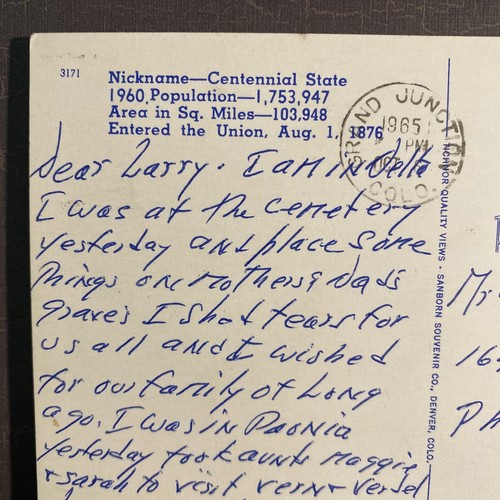 3171
Nickname—Centennial State
1960 Population—1,753,947
Area in Sq. Miles—103,948
Entered the Union, Aug. 1, 1876
GRAND JUNCTION
COLO.
1965
PM
OCT
Dear Larry. I am in Delta
I was at the cemetery
yesterday and place some
things on Mothers & Dad's
graves I shed tears for
us all and I wished
for our family of Long
ago. I was in Paonia
yesterday took aunts Maggie
& Sarah to visit
QUALITY VIEWS - SANBORN SOUVENIR CO., DENVER, COLO.
Mr
16